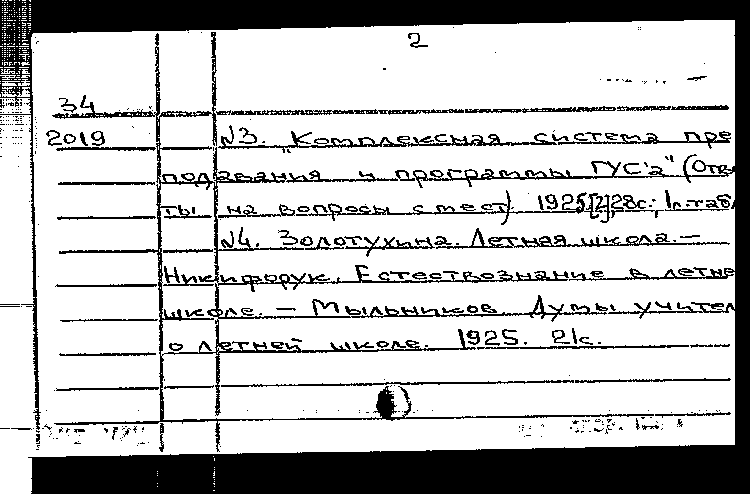 2
34
2019 №3. "Комплексная система пре
подавания и программы ГУС'а" (Отве
ты на вопросы с мест) 1925, [2], 28с.; 1л. табл
№4. Золотухина. Летная школа. —
Никифорук. Естествознание в летне
школе. — Мыльников. Думы учител
о летней школе. 1925. 21с.